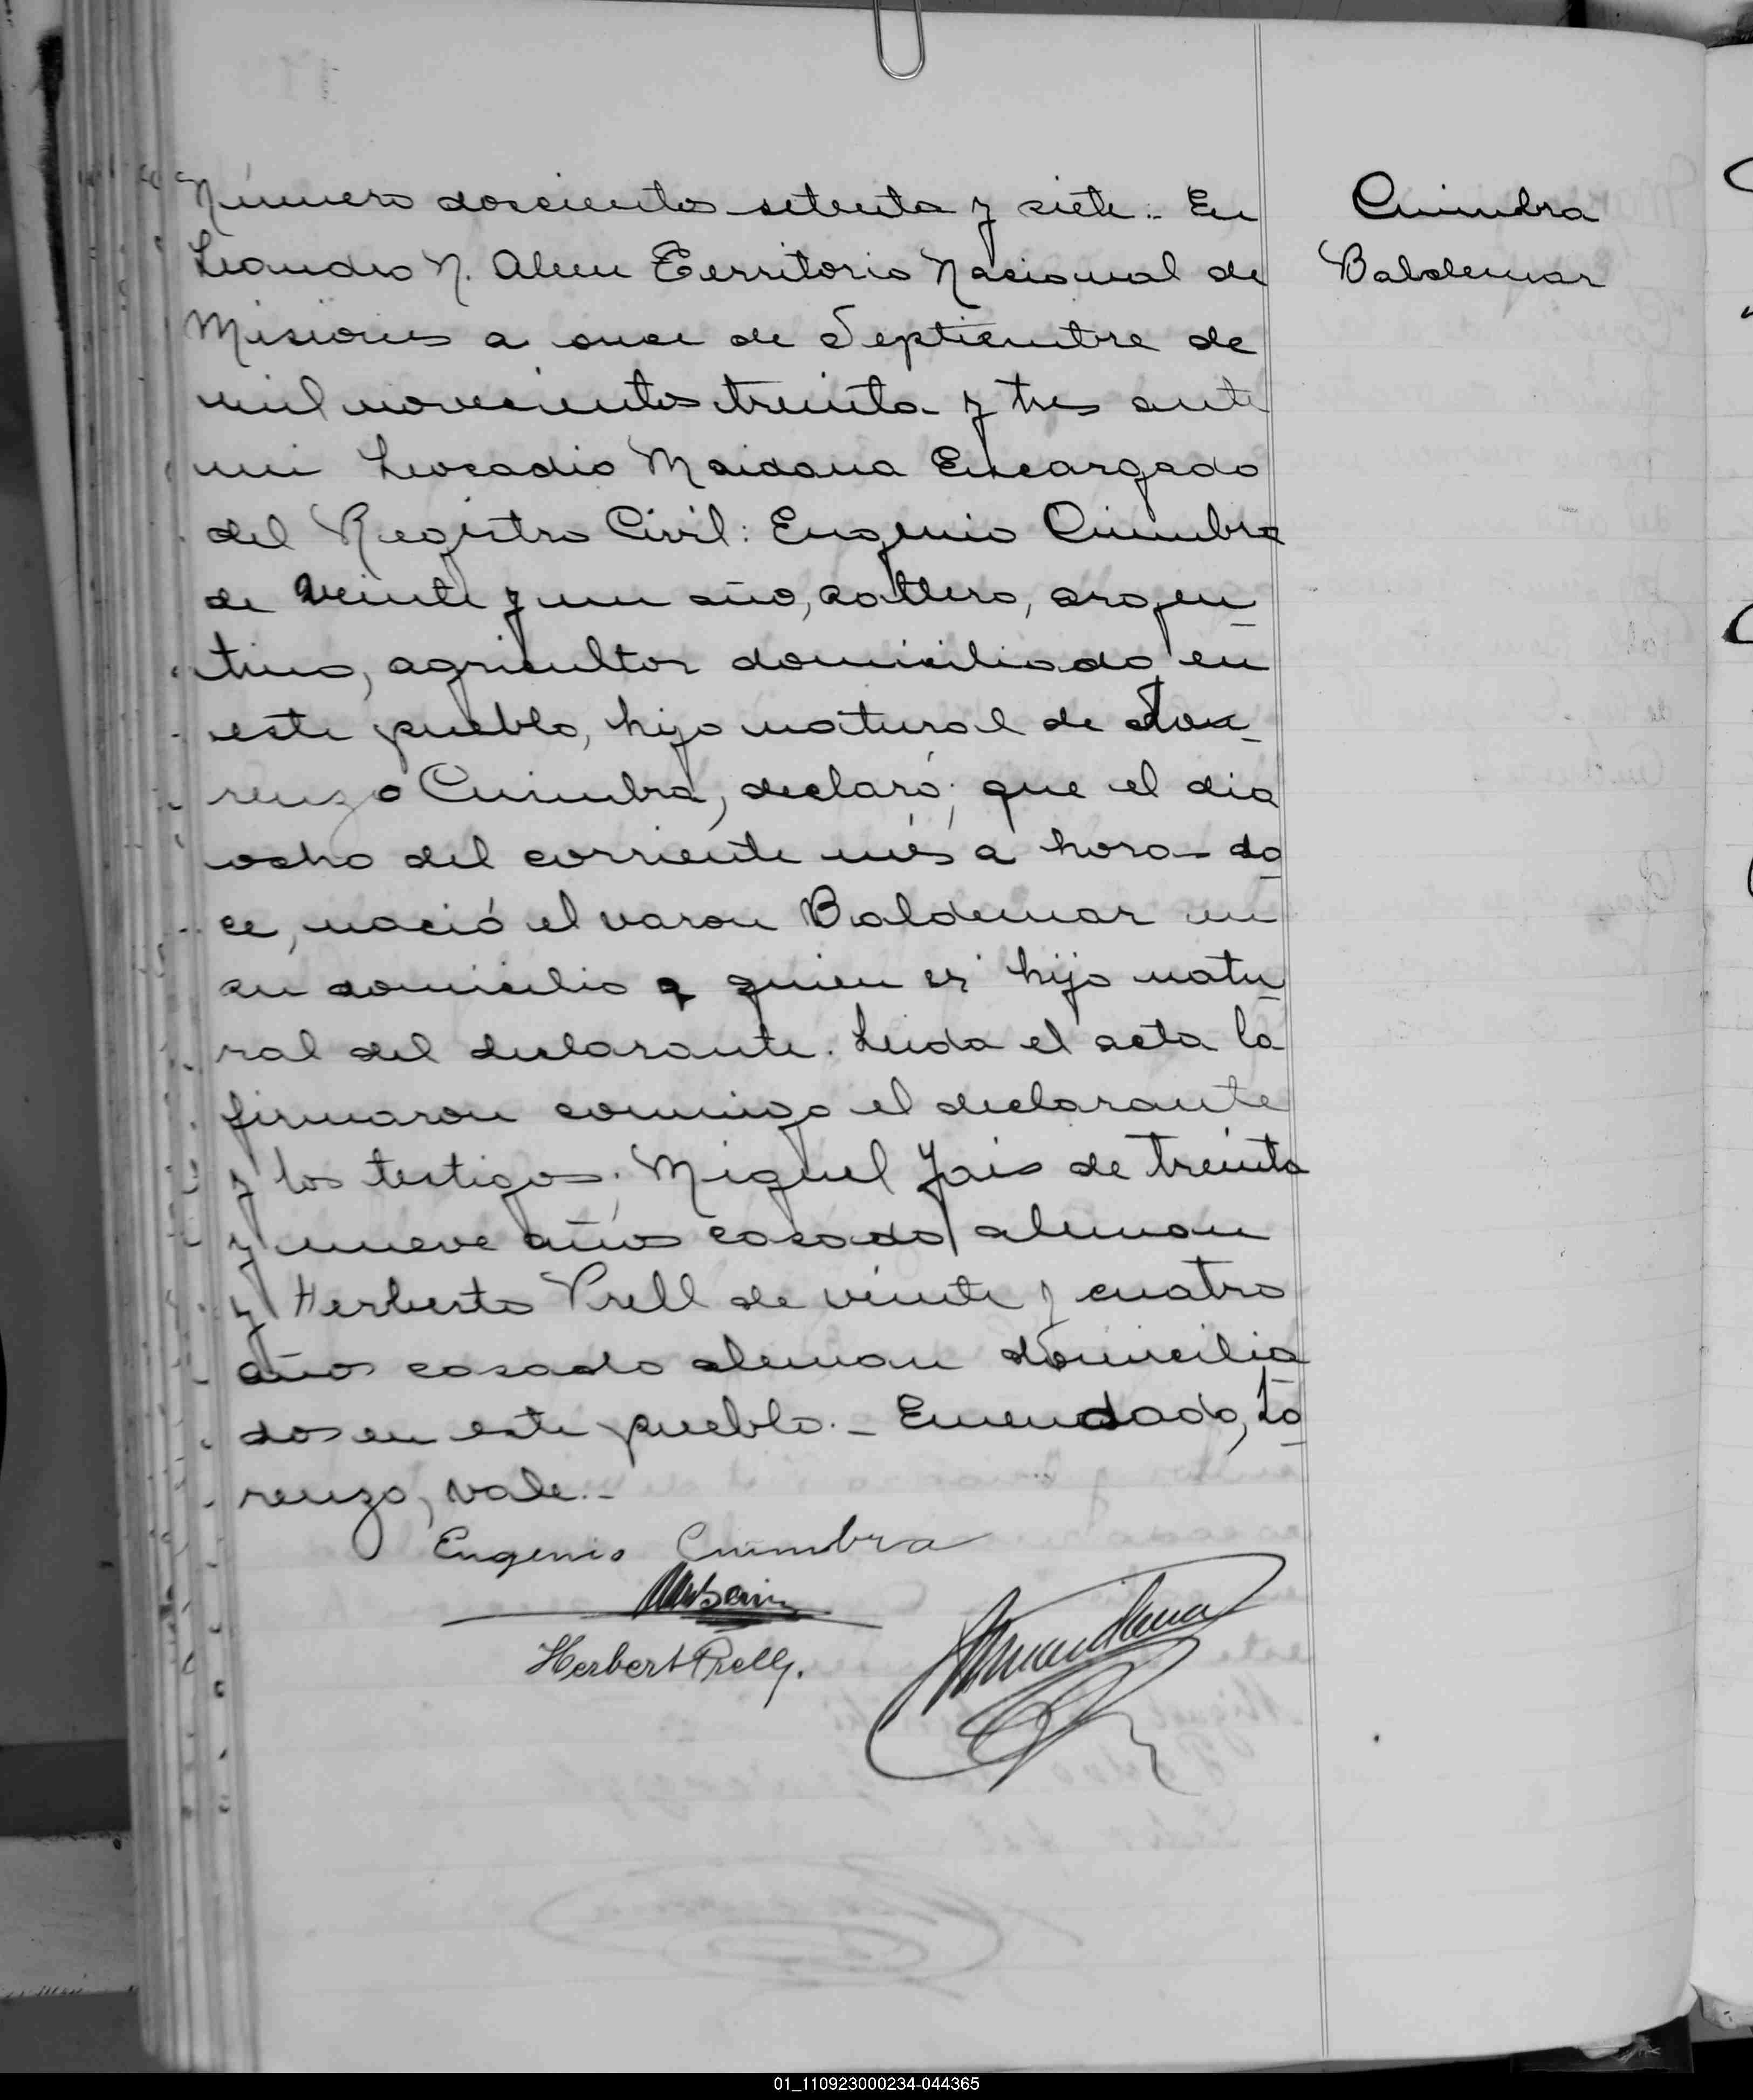 Número doscientos setenta y siete.- En
Leandro N. Alem Territorio Nacional de
Misiones a once de Septiembre de
mil novecientos treinta y tres ante
mi Leocadio Maidana Encargado
del Registro Civil: Eugenio Cuimbra
de veinte y un año, soltero, argen-
tino, agricultor domiciliado en
este pueblo, hijo natural de
renzo Cuimbra, declaró; que el dia
ocho del corriente més a hora do
ce, nació el varon Baldemar en
su domicilio y quien es hijo natu
ral del declarante. Leida el acta la
firmaron conmigo el declarante
y los testigos; Miguel de treinta
y nueve años casado aleman
y Herberto Prell de veinte y cuatro
años casado aleman domicilia
dos en este pueblo.- Enmendado, Lo
renzo, vale.-
Eugenio Cuimbra
Herbert Prell.
Cuimbra
Baldemar
01_110923000234-044365